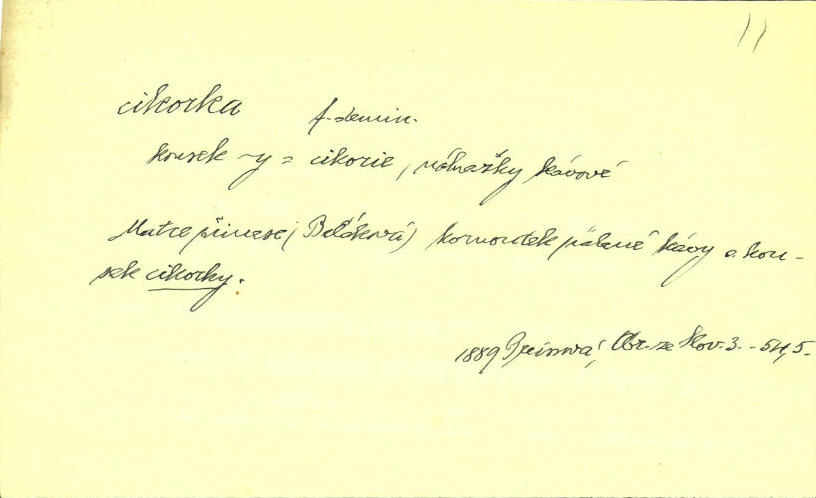 cikorka f. demin.
kousek ~y = cikorie, náhražky kávové
Matce přinese (Beláková) kornoutek pálené kávy a kou-
sek cikorky.
1889 Preissová, Obr. ze Slov. 3. - 54,5.